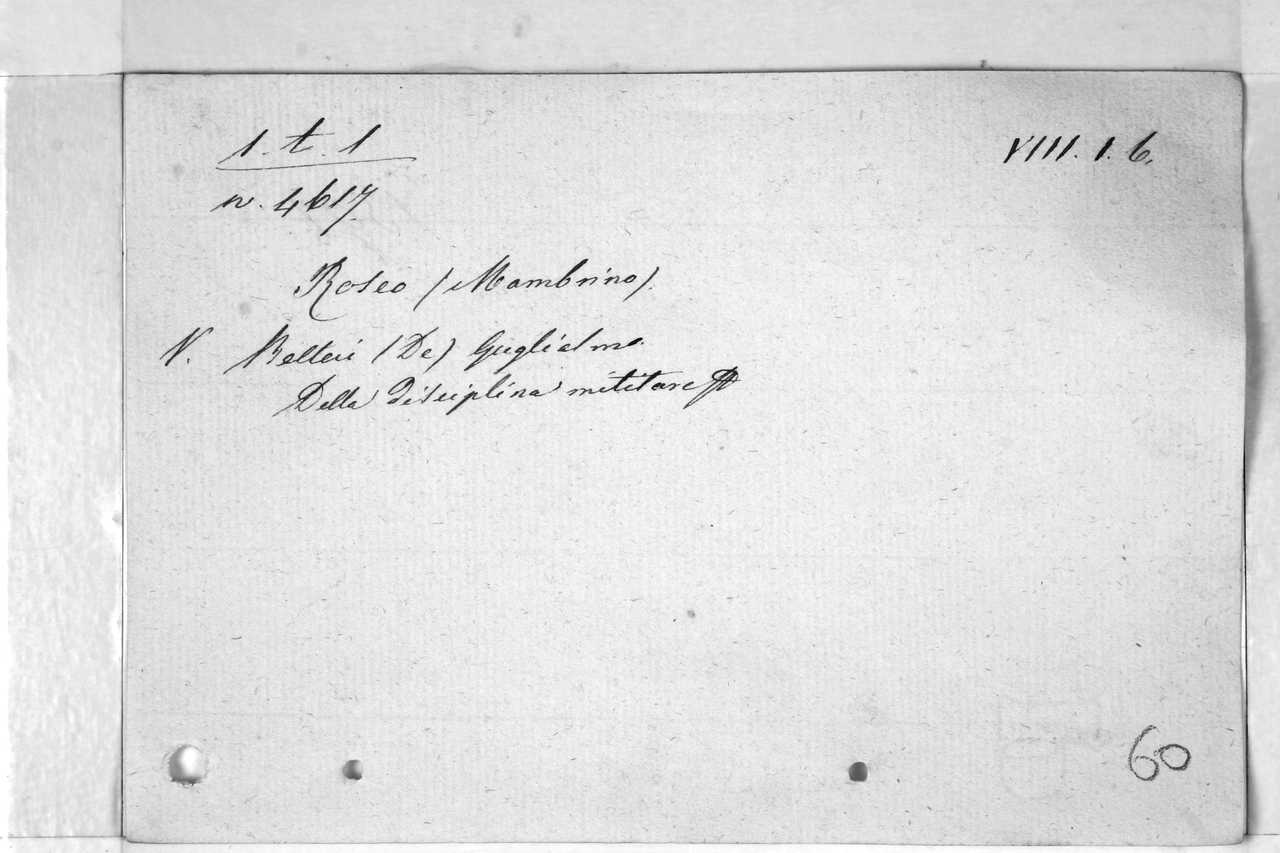 1. t. 1
VIII. 1. 6.
n. 4617
Roseo (Mambrino).
V. Belleri (De) Guglielmo.
Della disciplina militare
60